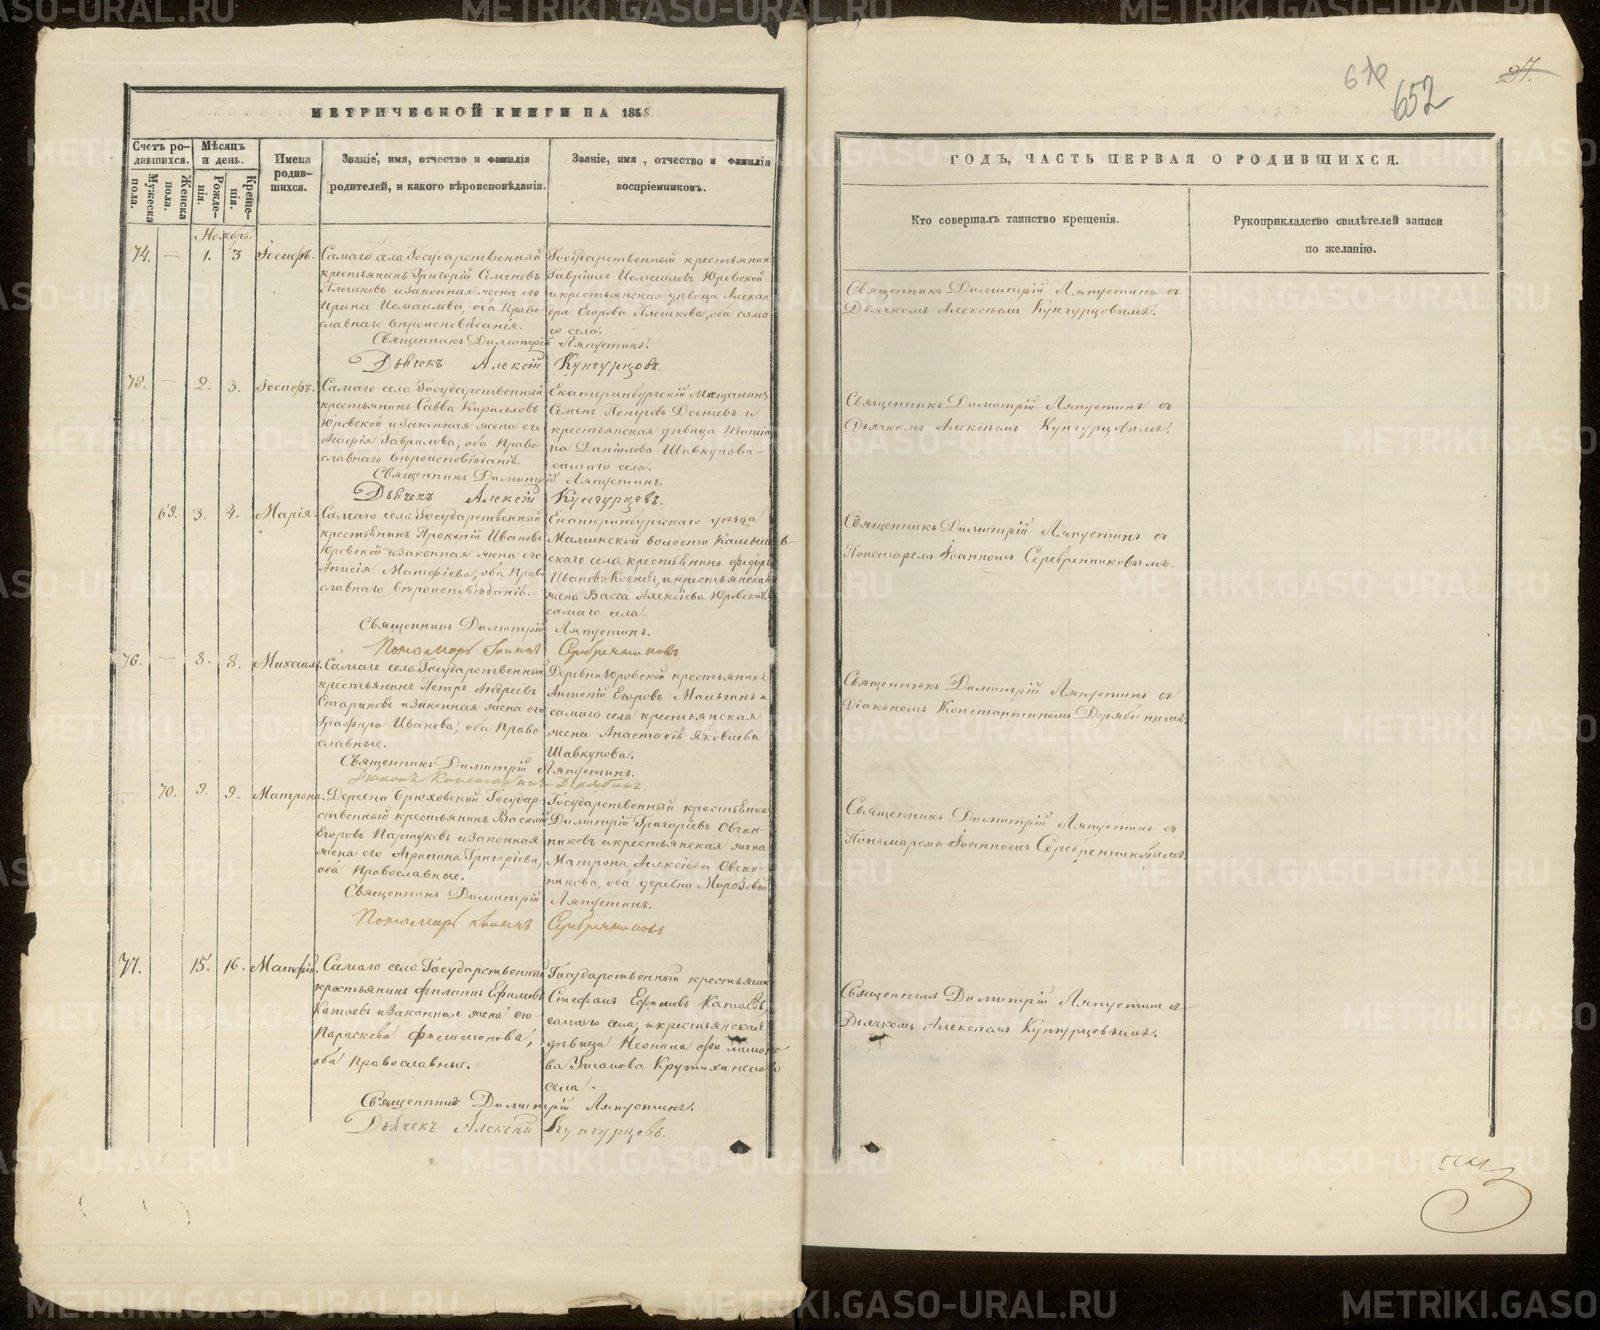 МЕТРИЧЕСКОЙ КНИГИ НА 1858
Счетъ ро-
дившихся.
Мужеска
пола.
Женска
пола.
Мѣсяцъ
и день.
Рожде-
нія.
Креще-
нія.
Имена
родив-
шихся.
Званіе, имя, отчество и фамилія
родителей, и какого вѣроисповѣданія.
Званіе, имя, отчество и фамилія
воспріемниковъ.
Ноябрь.
74. — 1. 3 Іосифъ.
Самаго села Государственный
крестьянинъ Григорій Семеновъ
Плешковъ и законная жена его
Ирина Исмаилова, оба Право-
славнаго вѣроисповѣданія.
Государственный крестьянин
Гавріилъ Исмаиловъ Юровской
и крестьянская дѣвица Алексан
дра Егорова Плешкова, оба сама-
го села.
Священникъ Димитрій Ляпустинъ.
Дьячекъ Алексій Кунгурцовъ.
75. — 2. 3. Іосифъ.
Самаго села Государственный
крестьянинъ Савва Кирилловъ
Юровской и законная жена его
Агафія Гаврилова, оба Право-
славнаго вѣроисповѣданія.
Екатеринбургскій мѣщанинъ
Семенъ Петровъ Дегтевъ и
крестьянская дѣвица
на Данилова Шавкунова
самаго села.
Священникъ Димитрій Ляпустинъ.
Дьячекъ Алексій Кунгурцовъ.
69. 3. 4. Марія.
Самаго села Государственный
крестьянинъ Прокопій Ивановъ
Юровской и законная жена его
Анисія Матфіева, оба Право
славнаго вѣроисповѣданія.
Екатеринбургскаго уѣзда
волости
скаго села крестьянинъ Федоръ
Ивановъ и крестьянская
жена Васса Алексіева Юровская
самаго села.
Священникъ Димитрій Ляпустинъ.
Пономарь Іоаннъ Серебренниковъ
76. — 8. 8. Михаилъ.
Самаго села Государственный
крестьянинъ Петръ Андреевъ
Стариковъ и законная жена его
Глафира Иванова, оба Право-
славные.
Деревни Юровской крестьянинъ
Антоній Егоровъ Мальгинъ и
самаго села крестьянская
жена Анастасія Яковлева
Шавкунова.
Священникъ Димитрій Ляпустинъ.
Діаконъ Константинъ Дерябинъ
— 70. 9. 9. Матрона.
Деревни Брюховской Государ-
ственный крестьянинъ Василій
Егоровъ и законная
жена его Агрипина Григоріева,
оба Православные.
Государственный крестьянинъ
Димитрій Григоріевъ Овчин-
никовъ и крестьянская жена
Матрона Алексіева Овчин-
никова, оба деревни Морозовой
Священникъ Димитрій Ляпустинъ.
Пономарь Іоаннъ Серебренниковъ
77. 15. 16. Матфій.
Самаго села Государственный
крестьянинъ Филиппъ Ефимовъ
Катаевъ и законная жена его
Параскева Филимонова,
оба Православные.
Государственный крестьянин
Стефанъ Ефимовъ Катаевъ,
самаго села, и крестьянская
дѣвица Неонила Филимоно-
ва Крутихинскаго
села.
Священникъ Димитрій Ляпустинъ.
Дьячекъ Алексѣй Кунгурцовъ.
652
27.
ГОДЪ, ЧАСТЬ ПЕРВАЯ О РОДИВШИХСЯ.
Кто совершалъ таинство крещенія.
Рукоприкладство свидѣтелей записи
по желанію.
Священникъ Димитрій Ляпустинъ съ
Дьячкомъ Алексѣемъ Кунгурцовымъ.
Священникъ Димитрій Ляпустинъ съ
Дьячкомъ Алексѣемъ Кунгурцовымъ.
Священникъ Димитрій Ляпустинъ съ
Пономаремъ Іоанномъ Серебренниковымъ.
Священникъ Димитрій Ляпустинъ съ
Діакономъ Константиномъ Дерябинымъ.
Священникъ Димитрій Ляпустинъ съ
Пономаремъ Іоанномъ Серебренниковымъ.
Священникъ Димитрій Ляпустинъ съ
Дьячкомъ Алексѣемъ Кунгурцовымъ.
METRIKI.GASO-URAL.RU